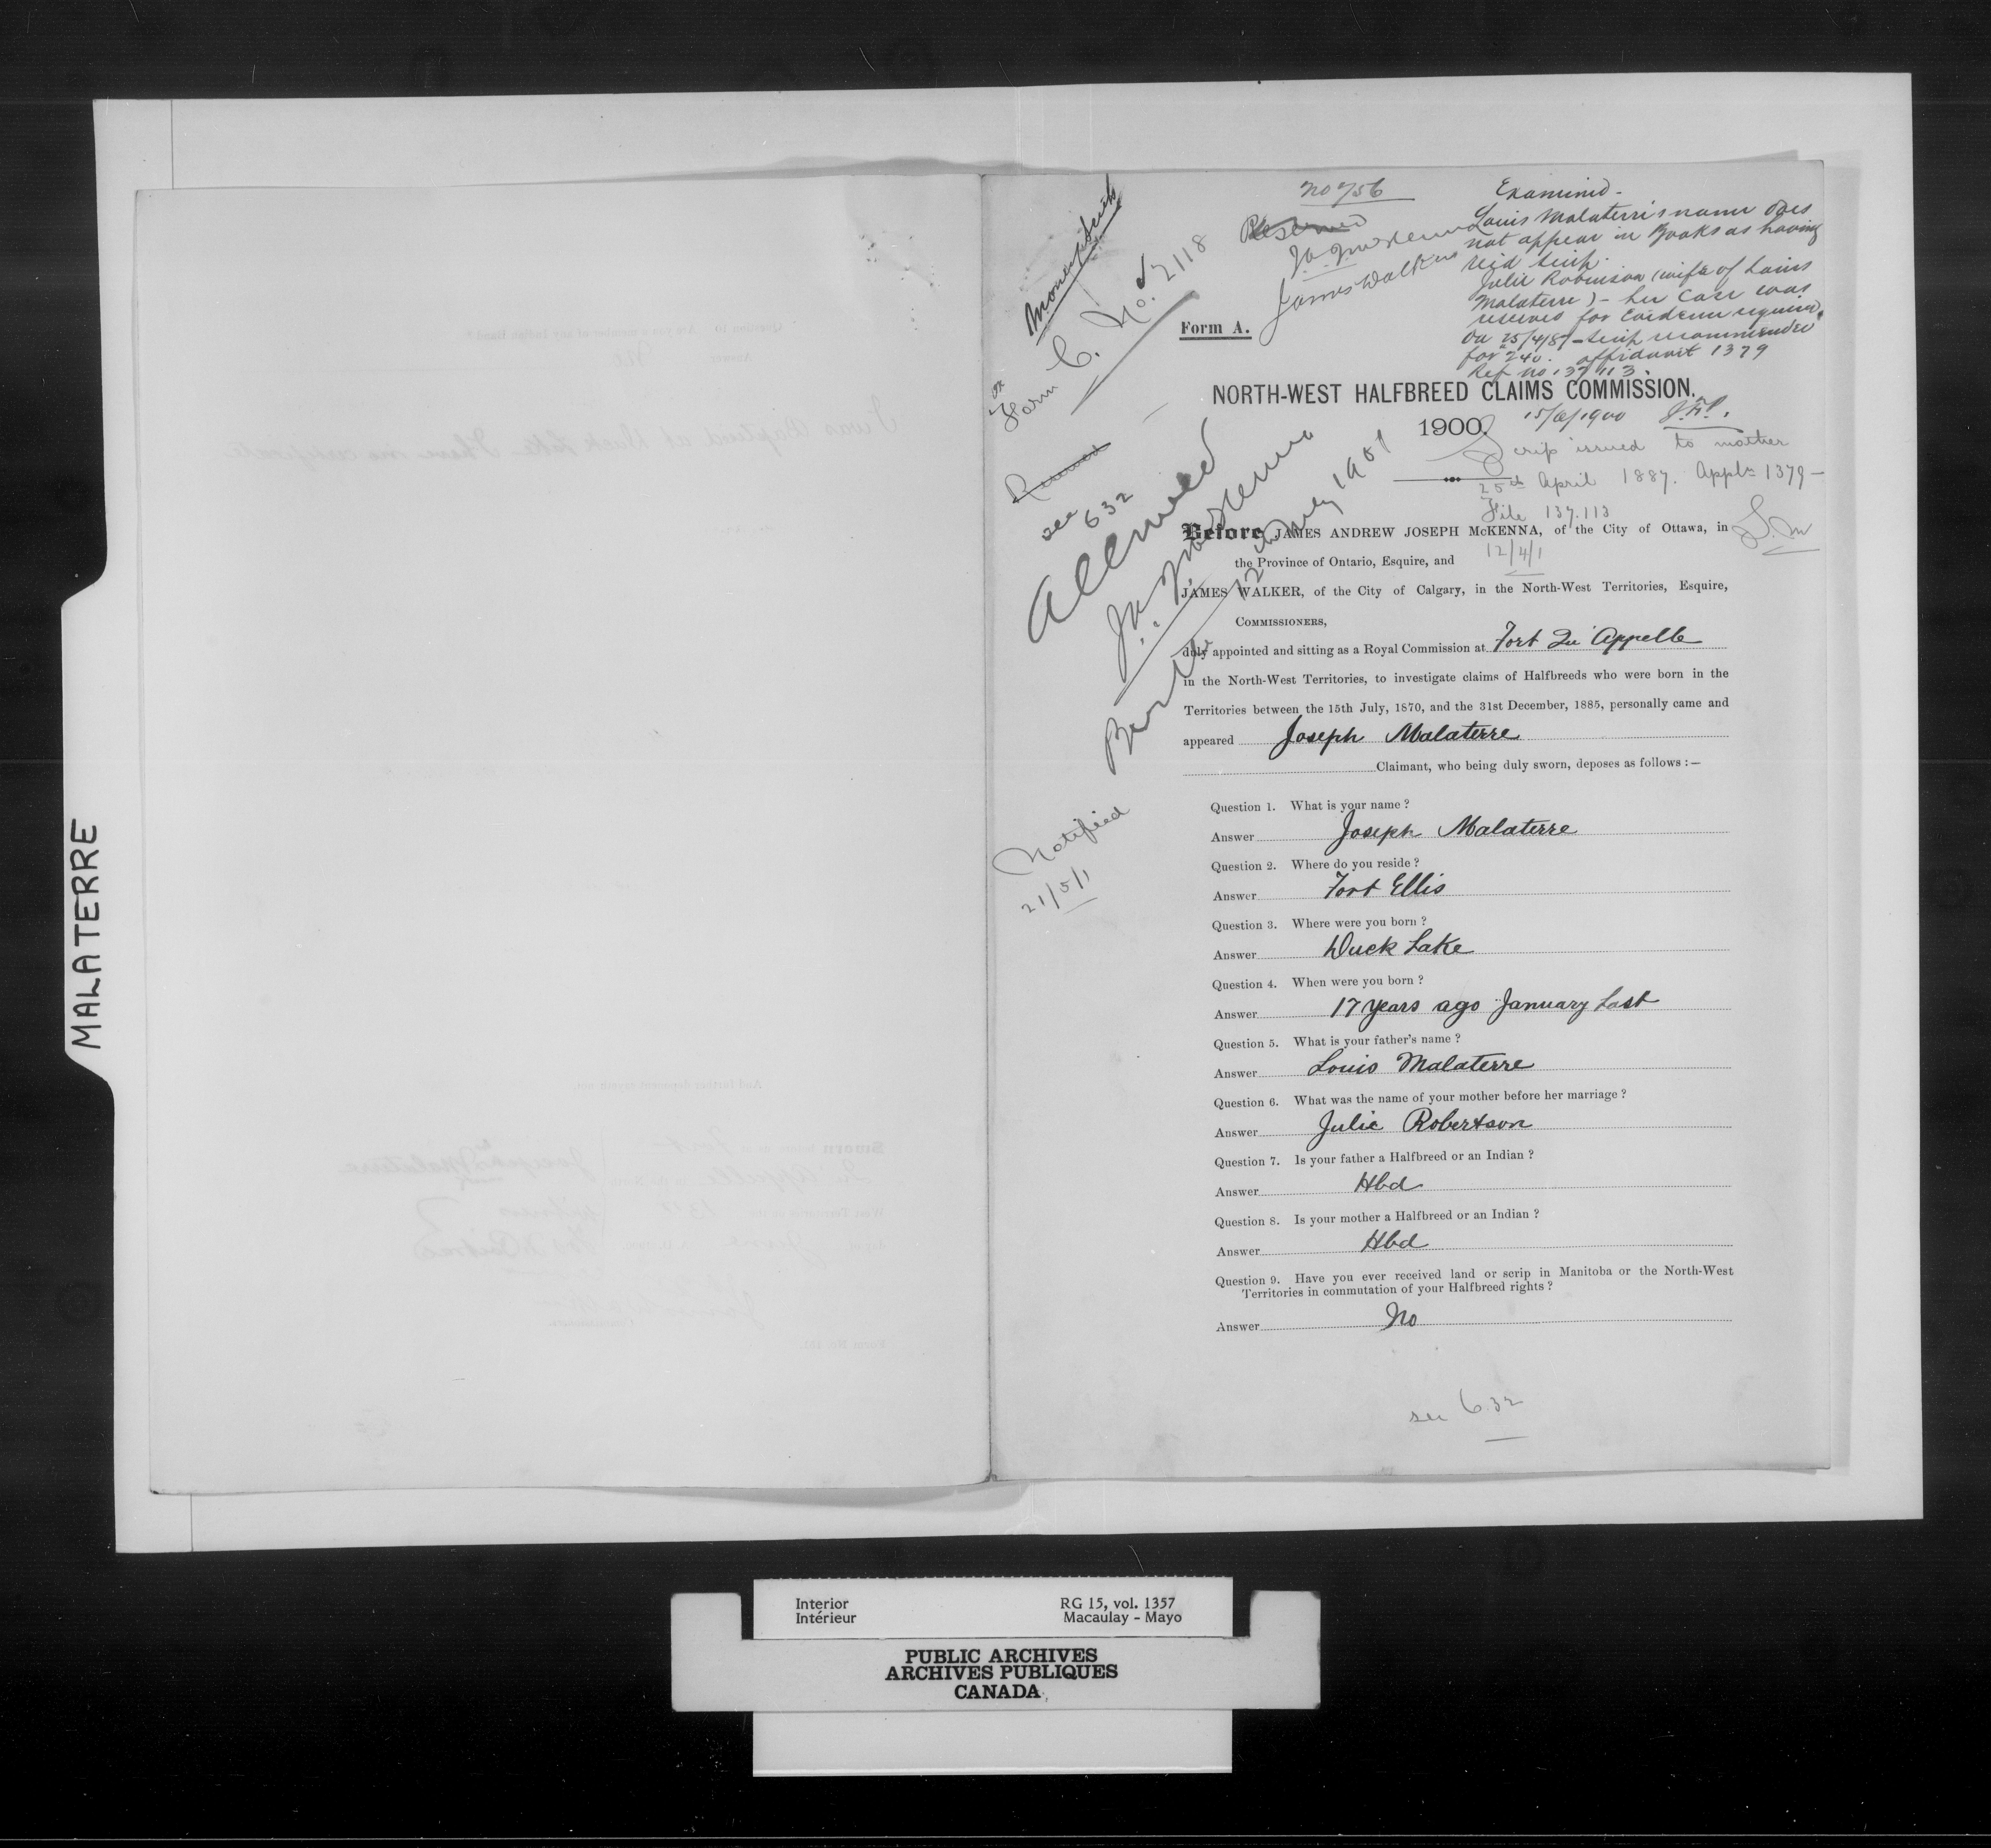 MALATERRE
No 756
Reserved
J.A.J. McKenna
James Walker
Examined -
Louis Malaterre's name does
not appear in Books as having
rec'd scrip.
Julie Robinson (wife of Louis
Malaterre) - her case was
reserved for Evidence required.
On 25/4/87 - scrip recommended
for $240. affidavit 1379
Ref no 137113.
15/6/1900
Money Scrip
for
Form C. No. 2118
Form A.
NORTH-WEST HALFBREED CLAIMS COMMISSION.
1900.
Scrip issued to mother
25th April 1887. Appln 1379 -
File 137.113
12/4/1
Reserved
see 632
Allowed
J.A.J. McKenna
12 July 1901
Notified
21/5/1
Before JAMES ANDREW JOSEPH McKENNA, of the City of Ottawa, in
the Province of Ontario, Esquire, and
JAMES WALKER, of the City of Calgary, in the North-West Territories, Esquire,
COMMISSIONERS,
duly appointed and sitting as a Royal Commission at Fort Qu'Appelle
in the North-West Territories, to investigate claims of Halfbreeds who were born in the
Territories between the 15th July, 1870, and the 31st December, 1885, personally came and
appeared Joseph Malaterre
Claimant, who being duly sworn, deposes as follows :—
Question 1. What is your name ?
Answer Joseph Malaterre
Question 2. Where do you reside ?
Answer Fort Ellis
Question 3. Where were you born ?
Answer Duck Lake
Question 4. When were you born ?
Answer 17 years ago January last
Question 5. What is your father's name ?
Answer Louis Malaterre
Question 6. What was the name of your mother before her marriage ?
Answer Julie Robertson
Question 7. Is your father a Halfbreed or an Indian ?
Answer Hbd
Question 8. Is your mother a Halfbreed or an Indian ?
Answer Hbd
Question 9. Have you ever received land or scrip in Manitoba or the North-West
Territories in commutation of your Halfbreed rights ?
Answer No
see 632
Interior
Intérieur
RG 15, vol. 1357
Macaulay - Mayo
PUBLIC ARCHIVES
ARCHIVES PUBLIQUES
CANADA